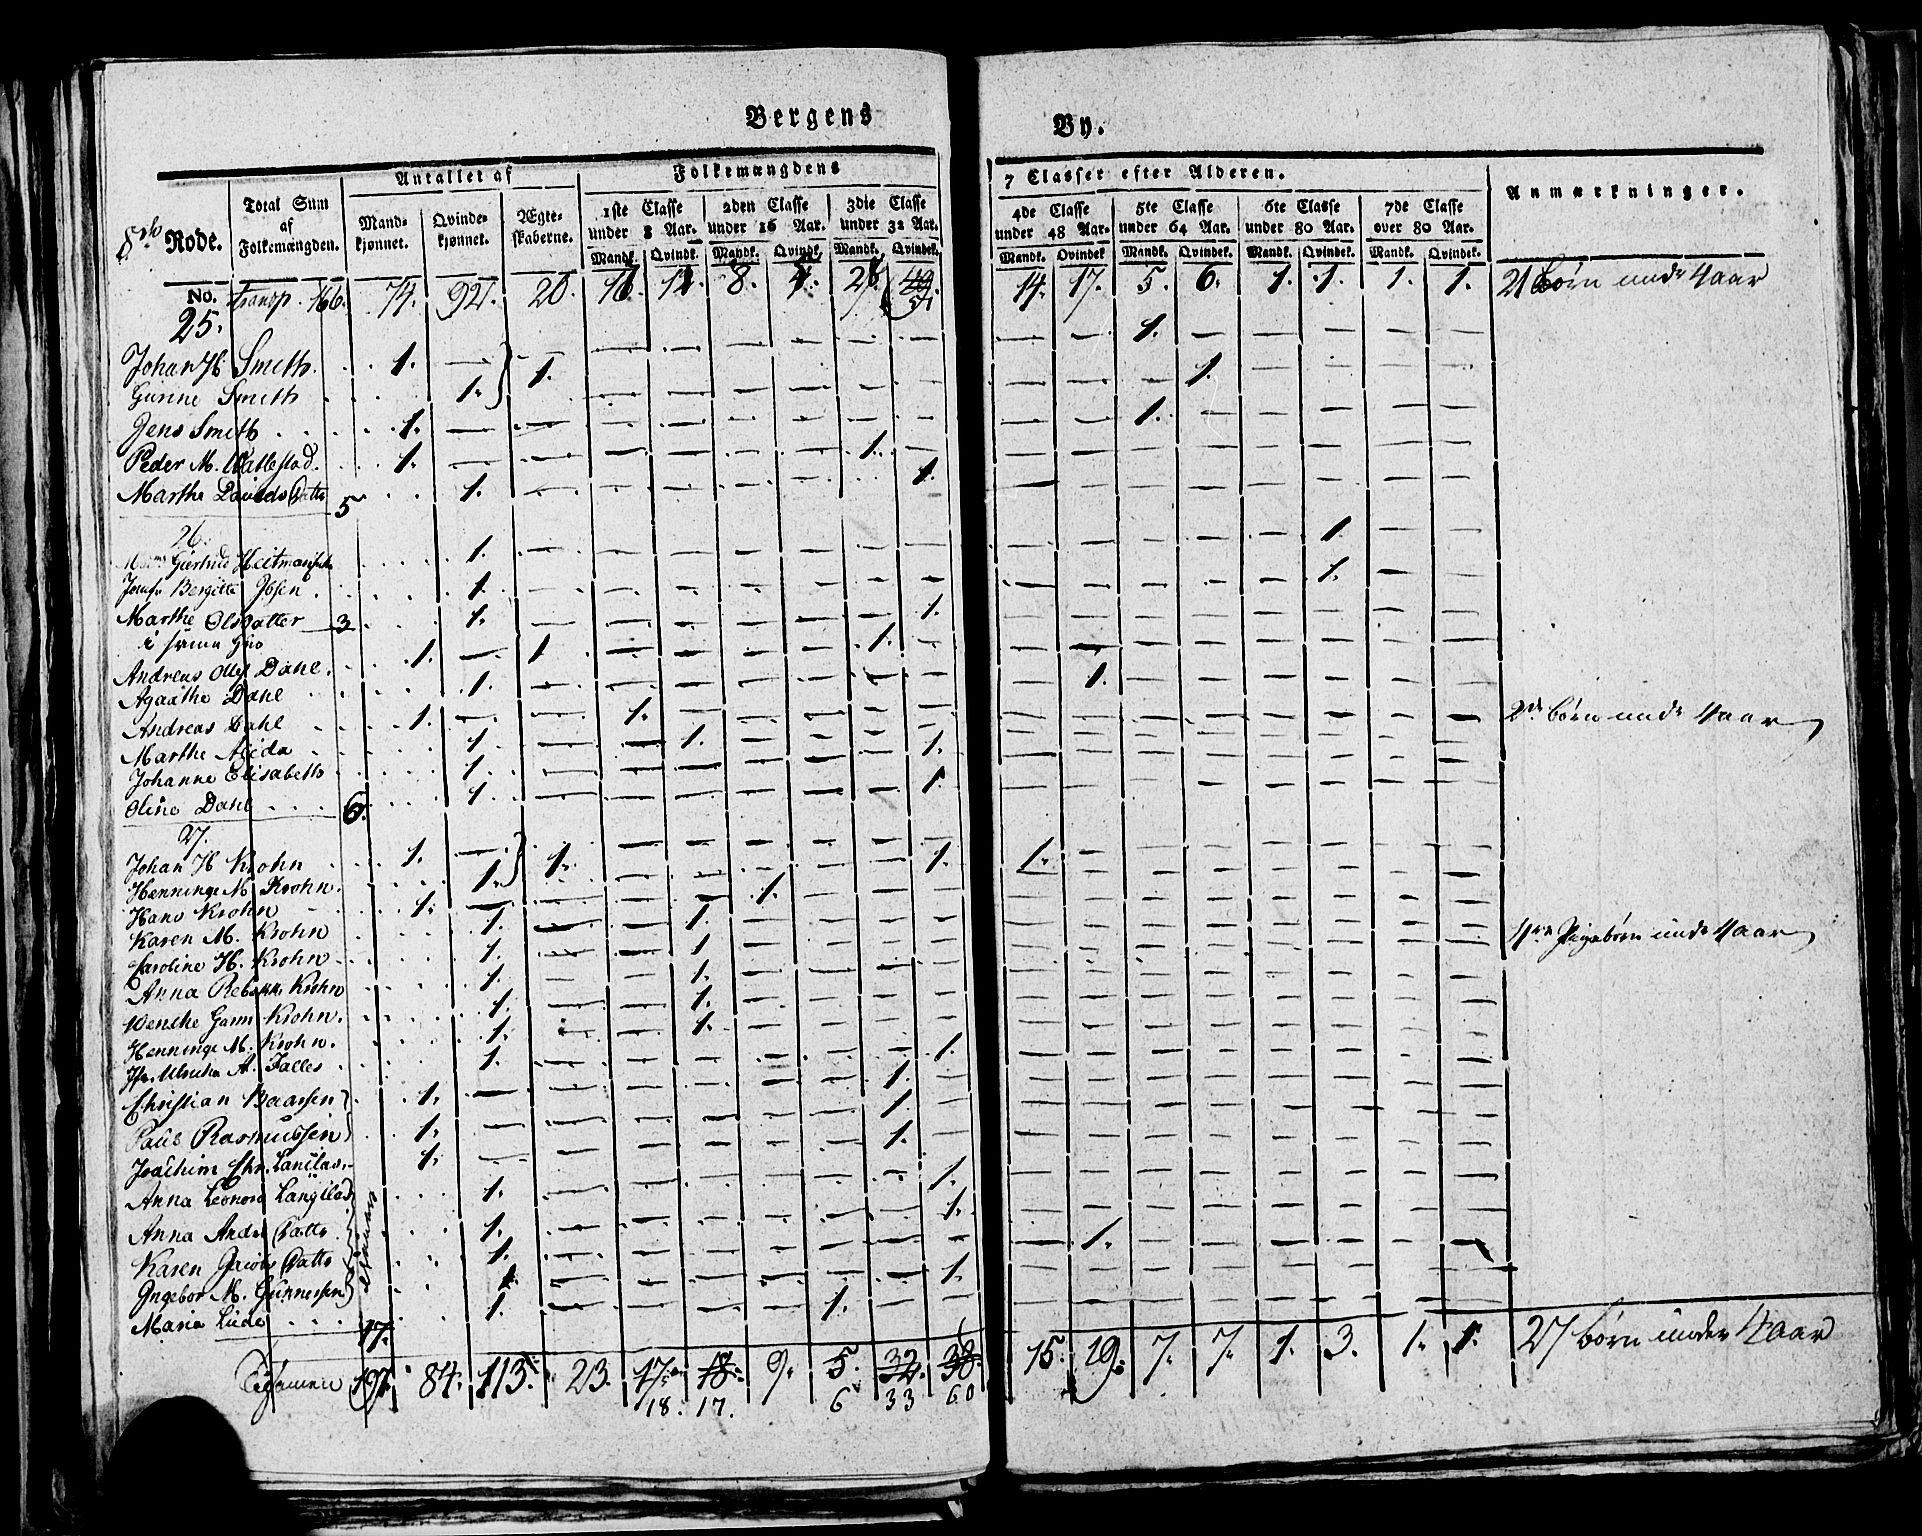 Bergens By.
8de Rode.
Total Sum af Folkemængden.
Antallet af
Mandkjønnet.
Qvindekjønnet.
Ægteskaberne.
Folkemængdens 7 Classer efter Alderen.
1ste Classe under 8 Aar.
2den Classe under 16 Aar.
3die Classe under 32 Aar.
4de Classe under 48 Aar.
5te Classe under 64 Aar.
6te Classe under 80 Aar.
7de Classe over 80 Aar.
Mandk. Qvindk. Mandk. Qvindk. Mandk. Qvindek. Mandk. Qvindek. Mandk. Qvindek. Mandk. Qvindek. Mandk. Qvindek.
Anmærkninger.
No. transp. 166. 74. 92. 20. 8. 14. 17. 5. 6. 1. 1. 1. 1. 21 Børn under 4 aar
25.
Johan H. Smith. 1. — 1. — — — — — — — — 1. — — — — —
Gurine Smith 1. — — — — — — — — — 1. — — — —
Jens Smith 1. — — — — — — — — — — 1. — — — — —
Peder M. Wallestad. 1. — — — — — — 1. —
Marthe Davids Datter 5 1. — — — — — — 1.
26.
Giertrud Heitman 1. — — — — — — — — — — — — 1. — —
Jomfr Bergitte Ibsen 1. — — — — — — — — — — — — 1. — —
Marthe Olsdatter 3 1. — — — — — — 1.
i samme Huus
Andreas Dahl. 1. — 1 — — — — 1. —
Agaathe Dahl 1. — — — — — — — — 1. — — — — — —
Andreas Dahl 1. — — 1. — — — — — 2de børn under 4 aar
Marthe Alida 1. — — 1. — — — 1.
Johanne Elisabeth 1.
Oline Dahl 6. 1. — — — — — — 1.
27.
Johan H Krohn 1. — 1. — — — — — — 1. — — — — — — —
Henninge M. Krohn. 1. — — — — — 1.
Hans Krohn 1. — — — — 1. — — —
Karen M. Krohn 1. — — 1. — — — — 4re Pigebørn under 4 aar
Caroline H. Krohn 1. — — 1. — — — —
Anna Rebekka Krohn 1. — — 1. — — — —
Wenche Garm Krohn. 1. — — 1. — — — —
Henninge M. Krohn. 1. — — 1. — — — —
Jfr. Ulricha A. Falles 1. — — — — — — 1.
Christian Baassen 1. — — — — — — 1. —
Paul Rasmussen 1. — — — — — — 1. —
Joachim Chr. 1. — — — — — — 1. —
Anna Leonora 1. — — — — — — 1.
Anna Andr Datter 1. — — — — — — 1.
Karen Jacobs Datter 1. — — — — — — — — 1. — — — — — —
Ingebor M. Gunnessen 1. — — — — — — 1.
Maria Lude 17. 1. — — — — — 1. —
197. 84. 113. 23. 17. 18. 9. 5. 32. 38. 15. 19. 7. 7. 1. 3. 1. 1. 27 børn under 4 aar
18. 17. 6 33 60